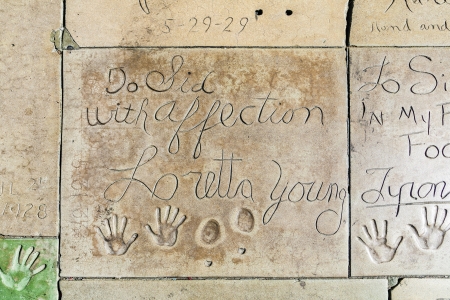 5-29-29
Hand and
Do Sid
with affection
Loretta Young
To Si
In My F
Foo
Tyron
1928